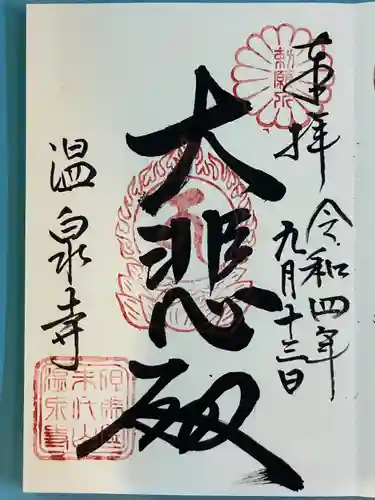 奉拝
勅願所
令和四年
九月十三日
大悲殿
温泉寺